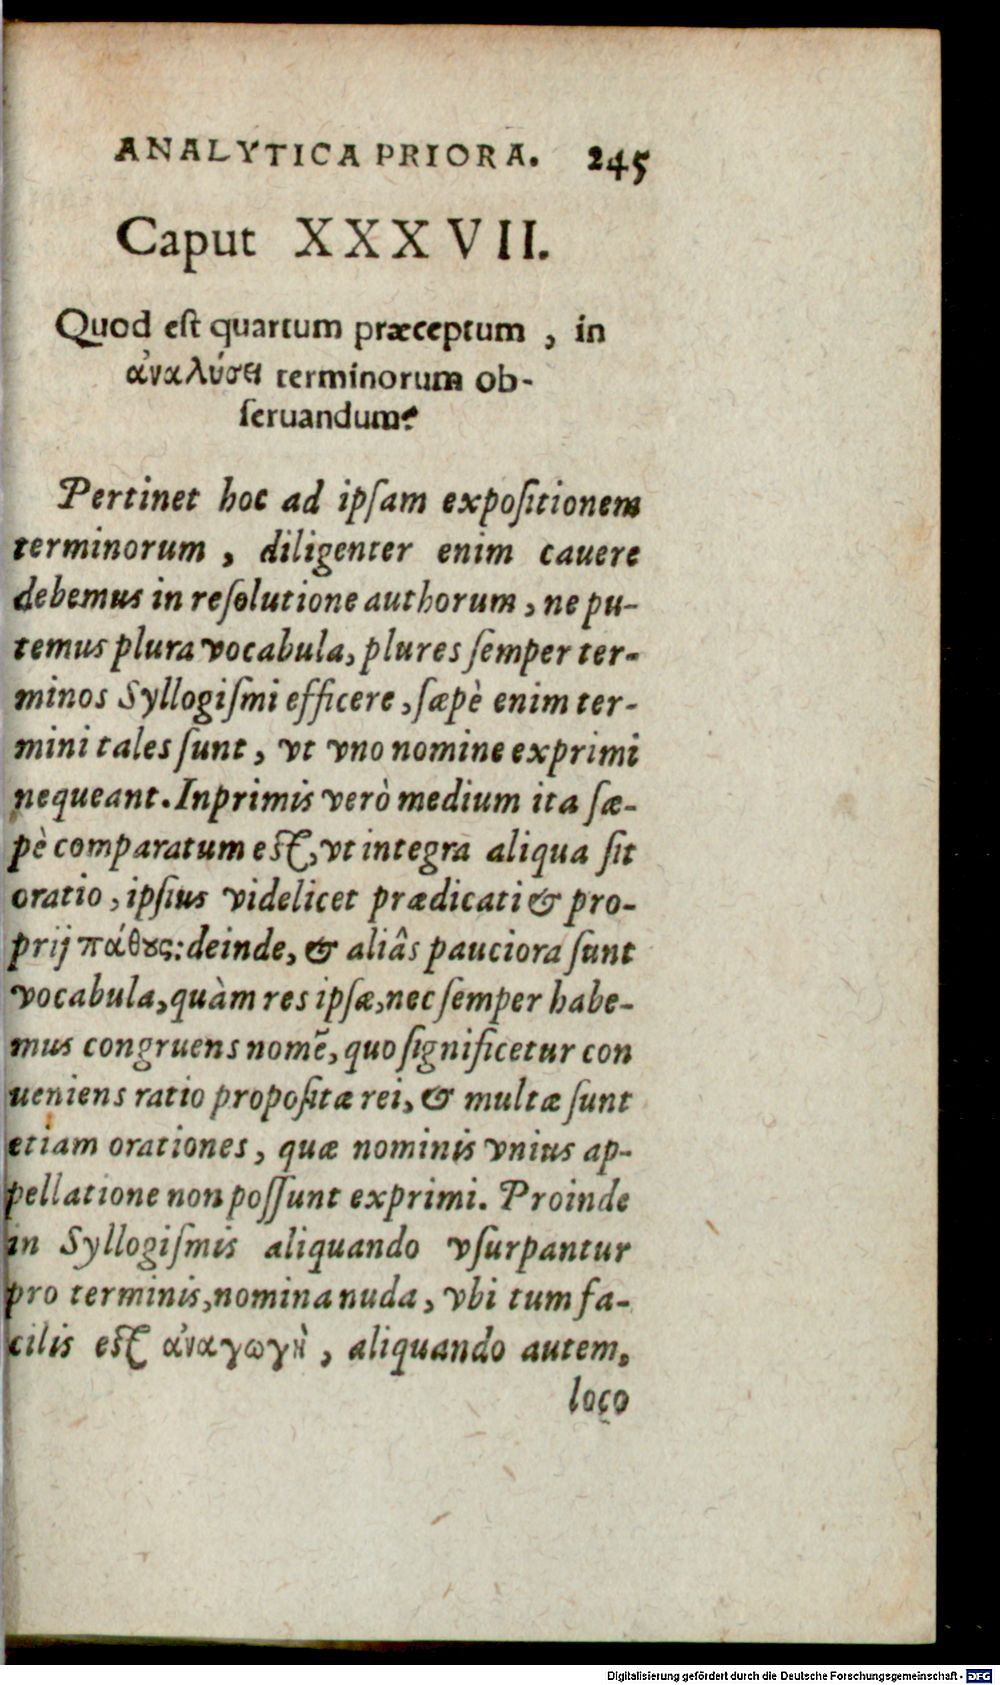 ANALYTICA PRIORA. 245
Caput XXXVII.
Quod est quartum præceptum, in
ἀναλύσει terminorum ob-
seruandum?
Pertinet hoc ad ipsam expositionem
terminorum, diligenter enim cauere
debemus in resolutione authorum, ne pu-
temus plura vocabula, plures semper ter-
minos Syllogismi efficere, sæpè enim ter-
mini tales sunt, vt vno nomine exprimi
nequeant. Inprimis verò medium ita sæ-
pè comparatum est, vt integra aliqua sit
oratio, ipsius videlicet prædicati & pro-
prij πάθους: deinde, & aliâs pauciora sunt
vocabula, quàm res ipsæ, nec semper habe-
mus congruens nomẽ, quo significetur con
ueniens ratio propositæ rei, & multæ sunt
etiam orationes, quæ nominis vnius ap-
pellatione non possunt exprimi. Proinde
in Syllogismis aliquando vsurpantur
pro terminis, nomina nuda, vbi tum fa-
cilis est ἀναγωγὴ, aliquando autem,
loco
Digitalisierung gefördert durch die Deutsche Forschungsgemeinschaft - DFG